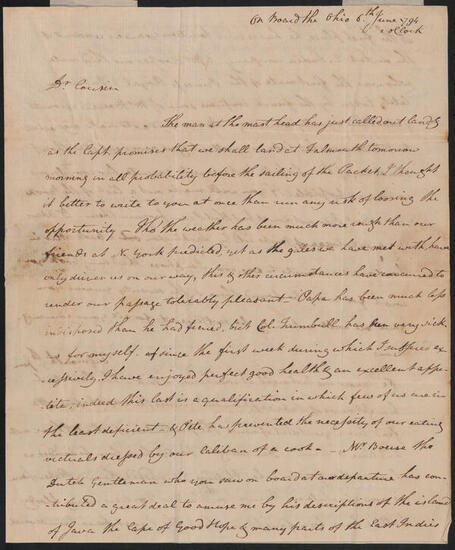 On Board the Ohio 6.th June 1794
6 oClock
Dr. Cousin
The man at the mast head has just called out land &
as the Capt. promises that we shall land at Falmouth tomorrow
morning in all probability before the sailing of the Packet, I thought
it better to write to you at once than run any risk of loosing the
opportunity - Tho' the weather has been much more rough than our
friends at N. York predicted, yet as the gales we have met with have
only driven us on our way, this & other circumstances have concurred to
render our passage tolerably pleasant - Papa has been much less
indisposed than he had feared, but Col. Trumbull has been very sick.
As for myself. since the first week during which I suffered ex-
cessively, I have enjoyed perfect good health & an excellent appe-
tite, indeed this last is a qualification in which few of us are in
the least deficient - & Pete has prevented the necessity of our eating
victuals dressed by our Caliban of a cook - Mr. the
Dutch Gentleman who you saw on board at our departure has con-
tributed a great deal to amuse me by his descriptions of the island
of Java the Cape of Good Hope & many parts of the East Indies